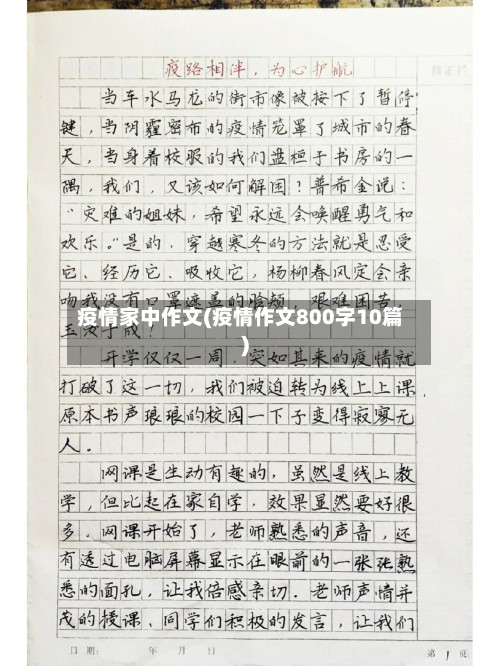 疫路相伴，为心护航
当车水马龙的街市像被按下了暂停
键，当阴霾密布的疫情笼罩了城市的春
天，当身着校服的我们盘桓于书房的一
隅，我们，又该如何解困？普希金说：
“灾难的姐妹，希望永远会唤醒勇气和
欢乐。”是的，穿越寒冬的方法就是忍受
它、经历它、吸收它，杨柳春风定会亲
吻我没有口罩遮盖的脸颊，艰难困苦，
疫情家中作文(疫情作文800字10篇
)
玉汝于成？
开学仅仅一周，突如其来的疫情就
打破了这一切，我们被迫转为线上上课，
原本书声琅琅的校园一下子变得寂寥无
人。
网课是生动有趣的，虽然是线上教
学，但比起在家自学，效果显然要好很
多。网课开始了，老师熟悉的声音，还
有透过电脑屏幕显示在眼前的一张张熟
悉的面孔，让我倍感亲切。老师声情并
茂的授课、同学们积极的发言，让我们
日期： 年 月 日
第 1 页